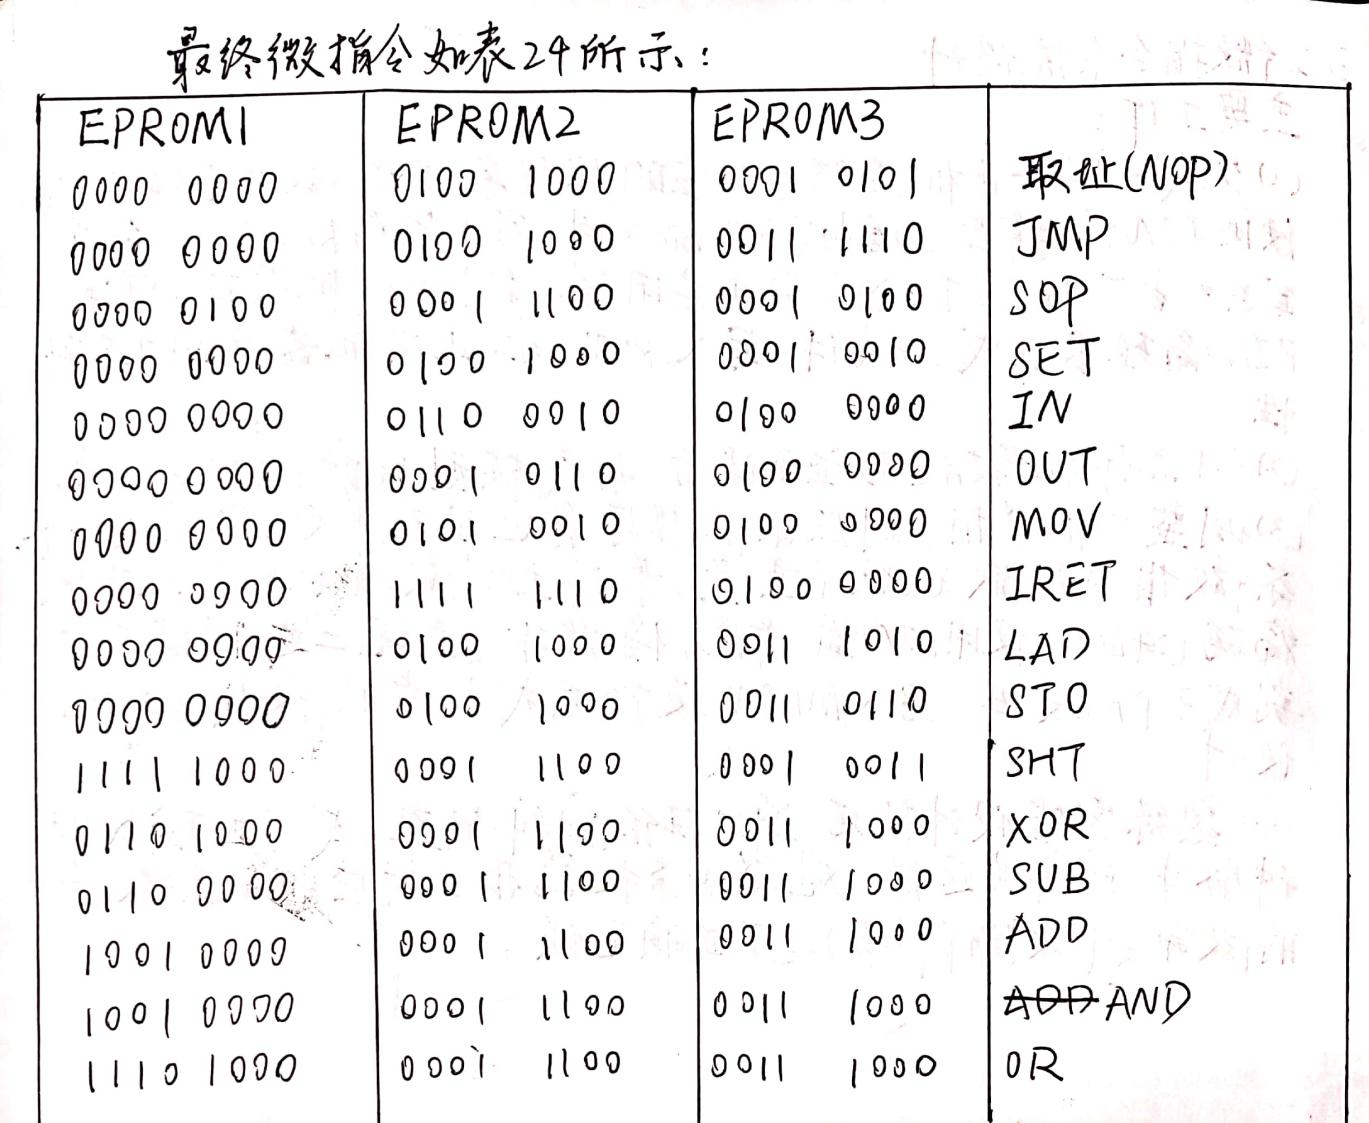 最终微指令如表24所示:
EPROM1 EPROM2 EPROM3
0000 0000 0100 1000 0001 0101 取址(NOP)
0000 0000 0100 1000 0011 1110 JMP
0000 0100 0001 1100 0001 0100 SOP
0000 0000 0100 1000 0001 0010 SET
0000 0000 0110 0010 0100 0000 IN
0000 0000 0001 0110 0100 0000 OUT
0000 0000 0101 0010 0100 0000 MOV
0000 0000 1111 1110 0100 0000 IRET
0000 0000 0100 1000 0011 1010 LAD
0000 0000 0100 1000 0011 0110 STO
1111 1000 0001 1100 0001 0011 SHT
0110 1000 0001 1100 0011 1000 XOR
0110 0000 0001 1100 0011 1000 SUB
1001 0000 0001 1100 0011 1000 ADD
1001 0000 0001 1100 0011 1000 ADD AND
1110 1000 0001 1100 0011 1000 OR